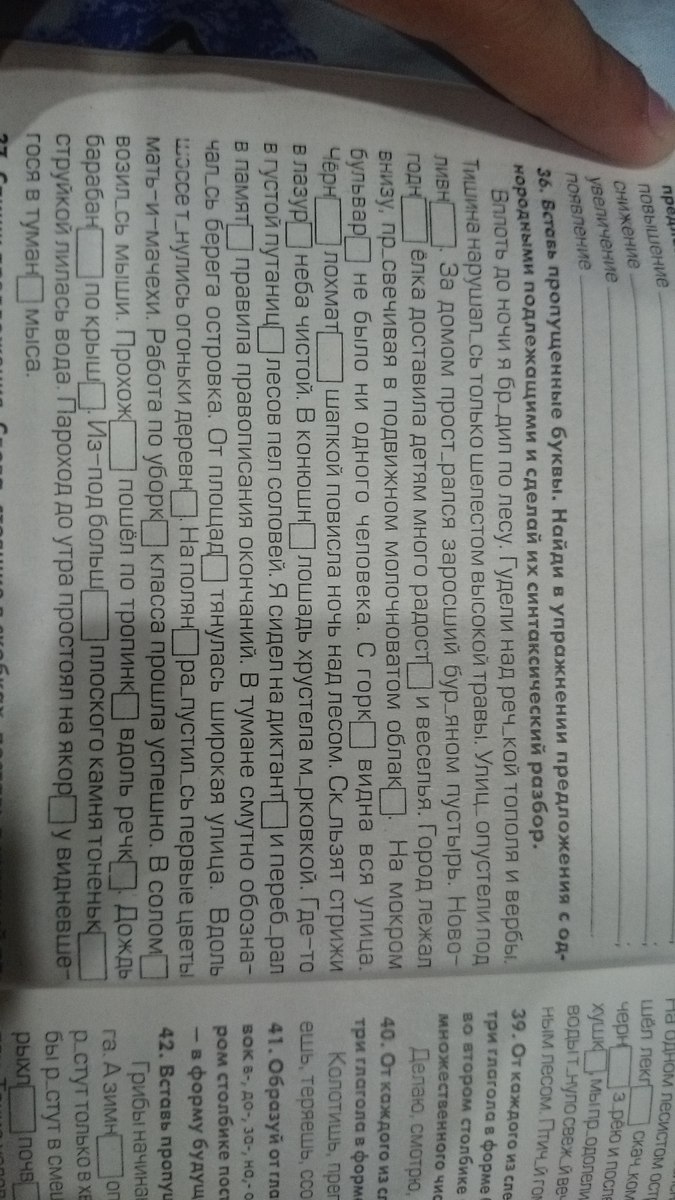 повышение
снижение
увеличение
появление
36. Вставь пропущенные буквы. Найди в упражнении предложения с од-
нородными подлежащими и сделай их синтаксический разбор.
Вплоть до ночи я бр_дил по лесу. Гудели над реч_кой тополя и вербы.
Тишина нарушал_сь только шелестом высокой травы. Улиц_ опустели под
ливн□. За домом прост_рался заросший бур_яном пустырь. Ново-
годн□ ёлка доставила детям много радост□ и веселья. Город лежал
внизу, пр_свечивая в подвижном молочноватом облак□. На мокром
бульвар□ не было ни одного человека. С горк□ видна вся улица.
Чёрн□ лохмат□ шапкой повисла ночь над лесом. Ск_льзят стрижи
в лазур□ неба чистой. В конюшн□ лошадь хрустела м_рковкой. Где-то
в густой путаниц□ лесов пел соловей. Я сидел на диктант□ и переб_рал
в памят□ правила правописания окончаний. В тумане смутно обозна-
чал_сь берега островка. От площад□ тянулась широкая улица. Вдоль
шоссе т_нулись огоньки деревн□. На полян□ ра_пустил_сь первые цветы
мать-и-мачехи. Работа по уборк□ класса прошла успешно. В солом□
возил_сь мыши. Прохож□ пошёл по тропинк□ вдоль речк□. Дождь
барабан□ по крыш□. Из-под больш□ плоского камня тоненьк□
струйкой лилась вода. Пароход до утра простоял на якор□ у видневше-
гося в туман□ мыса.
На одном лесистом
шёл легк□ скач_
черн□ з_рёю и
хушк□, мы
воды т_нуло свеж_й
ным лесом.
39. От каждого из
три глагола в форме
во втором столбике
множественного
Делаю, смотрю,
40. От каждого из
три глагола в форм
Колотишь,
ешь, теряешь,
41. Образуй от
вок в-, до-, за-, на-,
ром столбике
– в форму
42. Вставь
Грибы
га. А зимн□
р_стут только в
бы р_стут в
рыхл□ почв